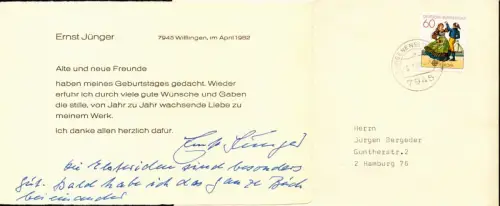 Ernst Jünger
7945 Wilflingen, im April 1982
Alte und neue Freunde
haben meines Geburtstages gedacht. Wieder
erfuhr ich durch viele gute Wünsche und Gaben
die stille, von Jahr zu Jahr wachsende Liebe zu
meinem Werk.
Ich danke allen herzlich dafür.
Ernst Jünger
Die sind besonders
gut. Bald habe ich das ganze Buch
beieinander
60
7945
Herrn
Jürgen Dergeder
Guntherstr.2
2 Hamburg 76